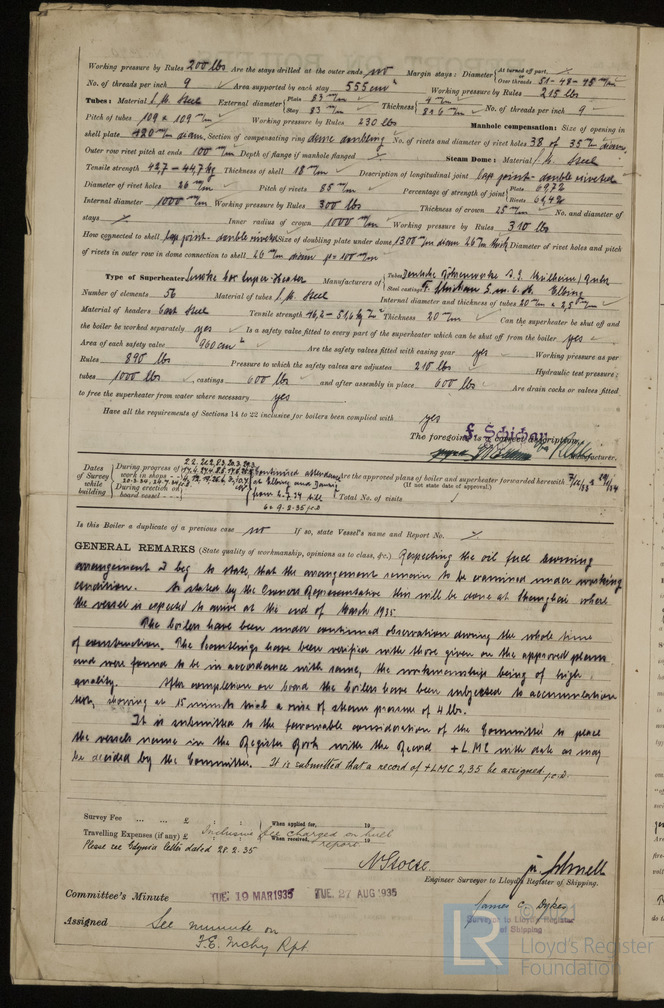 Working pressure by Rules 200 lbs Are the stays drilled at the outer ends no Margin stays: Diameter At turned off part, Over threads 51-48-45 m/m
No. of threads per inch 9 Area supported by each stay 555 cm² Working pressure by Rules 215 lbs
Tubes: Material S.M. Steel External diameter Plain 83 m/m Stay 83 m/m Thickness 4 m/m 8 & 6 m/m No. of threads per inch 9
Pitch of tubes 109 x 109 m/m Working pressure by Rules 230 lbs Manhole compensation: Size of opening in
shell plate 420 m/m diam. Section of compensating ring No. of rivets and diameter of rivet holes 38 of 35 m/m diam.
Outer row rivet pitch at ends 100 m/m Depth of flange if manhole flanged Steam Dome: Material S.M. Steel
Tensile strength 42,7 – 44,7 kg Thickness of shell 18 m/m Description of longitudinal joint lap joint- double riveted
Diameter of rivet holes 26 m/m Pitch of rivets 85 m/m Percentage of strength of joint Plate 69,7% Rivets 61,4%
Internal diameter 1000 m/m Working pressure by Rules 300 lbs Thickness of crown 25 m/m No. and diameter of
stays Inner radius of crown 1000 m/m Working pressure by Rules 310 lbs
How connected to shell lap joint- double riveted Size of doubling plate under dome 1300 m/m diam 26 m/m thick Diameter of rivet holes and pitch
of rivets in outer row in dome connection to shell 26 m/m diam p = 100 m/m
Type of Superheater Smoke box Super-heater Manufacturers of Tubes Deutsche Röhrenwerke A.G. Mülheim/Ruhr
Steel castings F. Schichau G.m.b.H. Elbing
Number of elements 56 Material of tubes S.M. Steel Internal diameter and thickness of tubes 20 m/m & 2,5 m/m
Material of headers Cast Steel Tensile strength 46,2 – 51,6 kg Thickness 20 m/m Can the superheater be shut off and
the boiler be worked separately yes Is a safety valve fitted to every part of the superheater which can be shut off from the boiler yes
Area of each safety valve 960 cm² Are the safety valves fitted with easing gear yes Working pressure as per
Rules 890 lbs Pressure to which the safety valves are adjusted 210 lbs Hydraulic test pressure:
tubes 1000 lbs, castings 600 lbs and after assembly in place 600 lbs Are drain cocks or valves fitted
to free the superheater from water where necessary yes
Have all the requirements of Sections 14 to 22 inclusive for boilers been complied with yes
F. Schichau
The foregoing is a correct description,
Manufacturer.
Dates of Survey while building During progress of work in shops - - During erection on board vessel - - - Continued attendance at Elbing and Danzig from 6.7.34 till 9.2.35 Are the approved plans of boiler and superheater forwarded herewith
(If not state date of approval.)
Total No. of visits
Is this Boiler a duplicate of a previous case no If so, state Vessel's name and Report No.
GENERAL REMARKS (State quality of workmanship, opinions as to class, &c.) Respecting the oil fuel burning
arrangement I beg to state, that the arrangement remains to be examined under working
condition. As stated by the Owners Representative this will be done at Shanghai where
the vessel is expected to arrive at the end of March 1935.
The boilers have been under continued observation during the whole time
of construction. The Scantlings have been verified with those given on the approved plans
and were found to be in accordance with same, the workmanship being of high
quality. After completion on board the boilers have been subjected to accumulation
test, showing at 15 minutes trial a rise of steam pressure of 4 lbs.
It is submitted to the favourable consideration of the Committee to place
the vessels name in the Register Book with the Record +LMC with date as may
be decided by the Committee. It is submitted that a record of +LMC 2,35 be assigned
Survey Fee ... ... £ : : When applied for, 19
Travelling Expenses (if any) £ : : When received, 19
Inclusive fee charged on hull report
Please see Gdynia letter dated 28.2.35
Engineer Surveyor to Lloyd's Register of Shipping.
Committee's Minute TUE. 19 MAR 1935 TUE. 27 AUG 1935
James C. Dykes
Surveyor to Lloyd's Register of Shipping
Assigned See minute on
F.E. Mchy Rpt
© 2021
LR
Lloyd's Register
Foundation